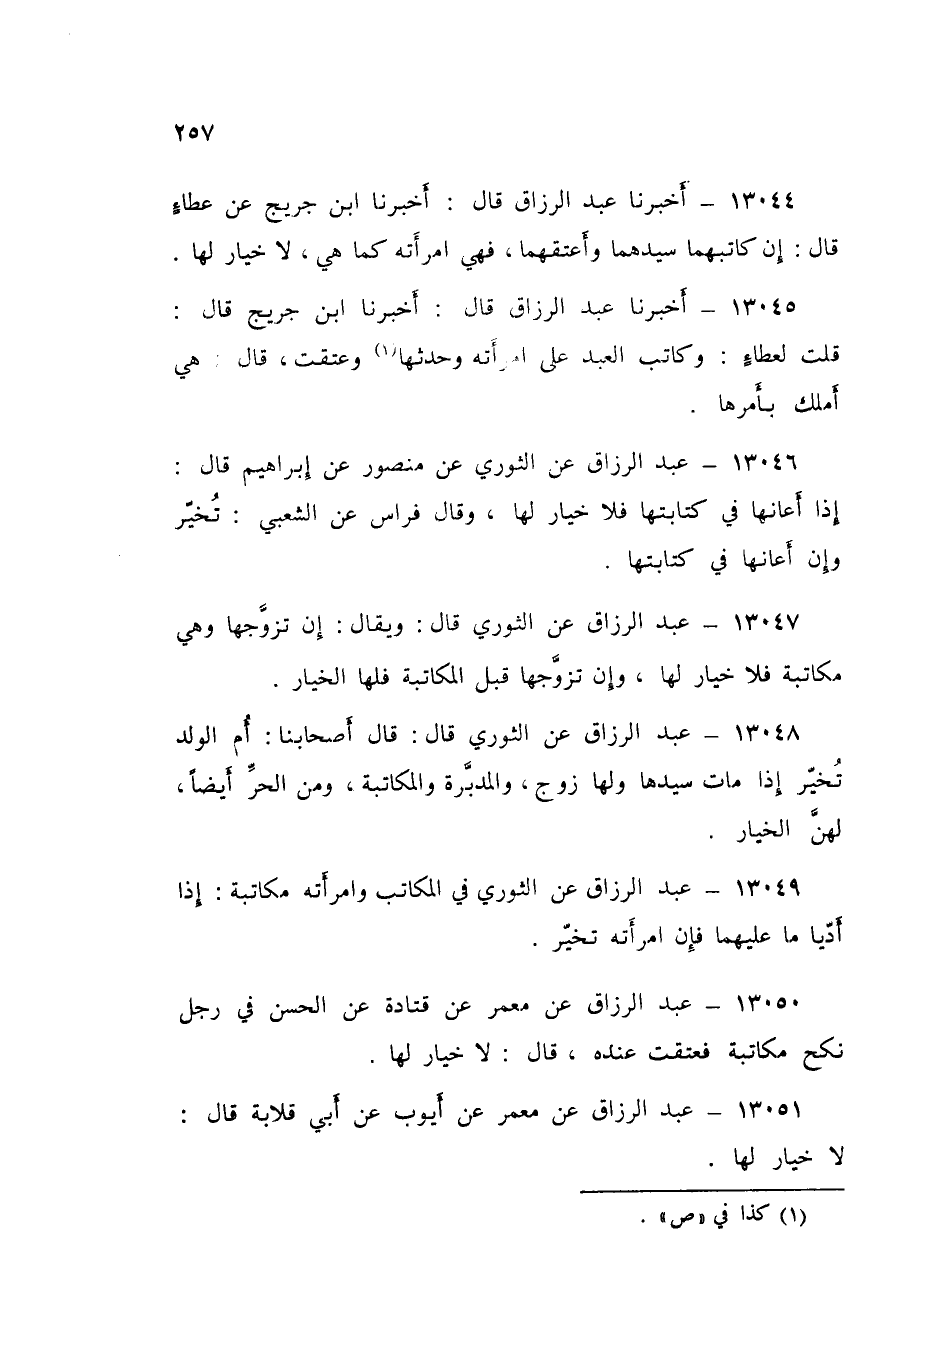 ٢٥٧
١٣٠٤٤ – أَخبرنا عبد الرزاق قال : أَخبرنا ابن جريج عن عطاءٍ
قال : إِن كاتبهما سيدهما وأَعتقهما ، فهي امرأَته كما هي ، لا خيار لها .
١٣٠٤٥ – أَخبرنا عبد الرزاق قال : أَخبرنا ابن جريج قال :
قلت لعطاءٍ : وكاتب العبد على امرأَته وحدثها(١) وعتقت ، قال : هي
أَملك بأَمرها .
١٣٠٤٦ – عبد الرزاق عن الثوري عن منصور عن إِبراهيم قال :
إِذا أَعانها في كتابتها فلا خيار لها ، وقال فراس عن الشعبي : تُخيّر
وإِن أَعانها في كتابتها .
١٣٠٤٧ – عبد الرزاق عن الثوري قال : ويقال : إِن تزوَّجها وهي
مكاتبة فلا خيار لها ، وإِن تزوَّجها قبل المكاتبة فلها الخيار .
١٣٠٤٨ – عبد الرزاق عن الثوري قال : قال أَصحابنا : أُم الولد
تُخيّر إِذا مات سيدها ولها زوج ، والمدبَّرة والمكاتبة ، ومن الحرِّ أَيضاً ،
لهنَّ الخيار .
١٣٠٤٩ – عبد الرزاق عن الثوري في المكاتب وامرأَته مكاتبة : إِذا
أَدّيا ما عليهما فإِن امرأَته تخيّر .
١٣٠٥٠ – عبد الرزاق عن معمر عن قتادة عن الحسن في رجل
نكح مكاتبة فعتقت عنده ، قال : لا خيار لها .
١٣٠٥١ – عبد الرزاق عن معمر عن أَيوب عن أَبي قلابة قال :
لا خيار لها .
(١) كذا في «ص» .